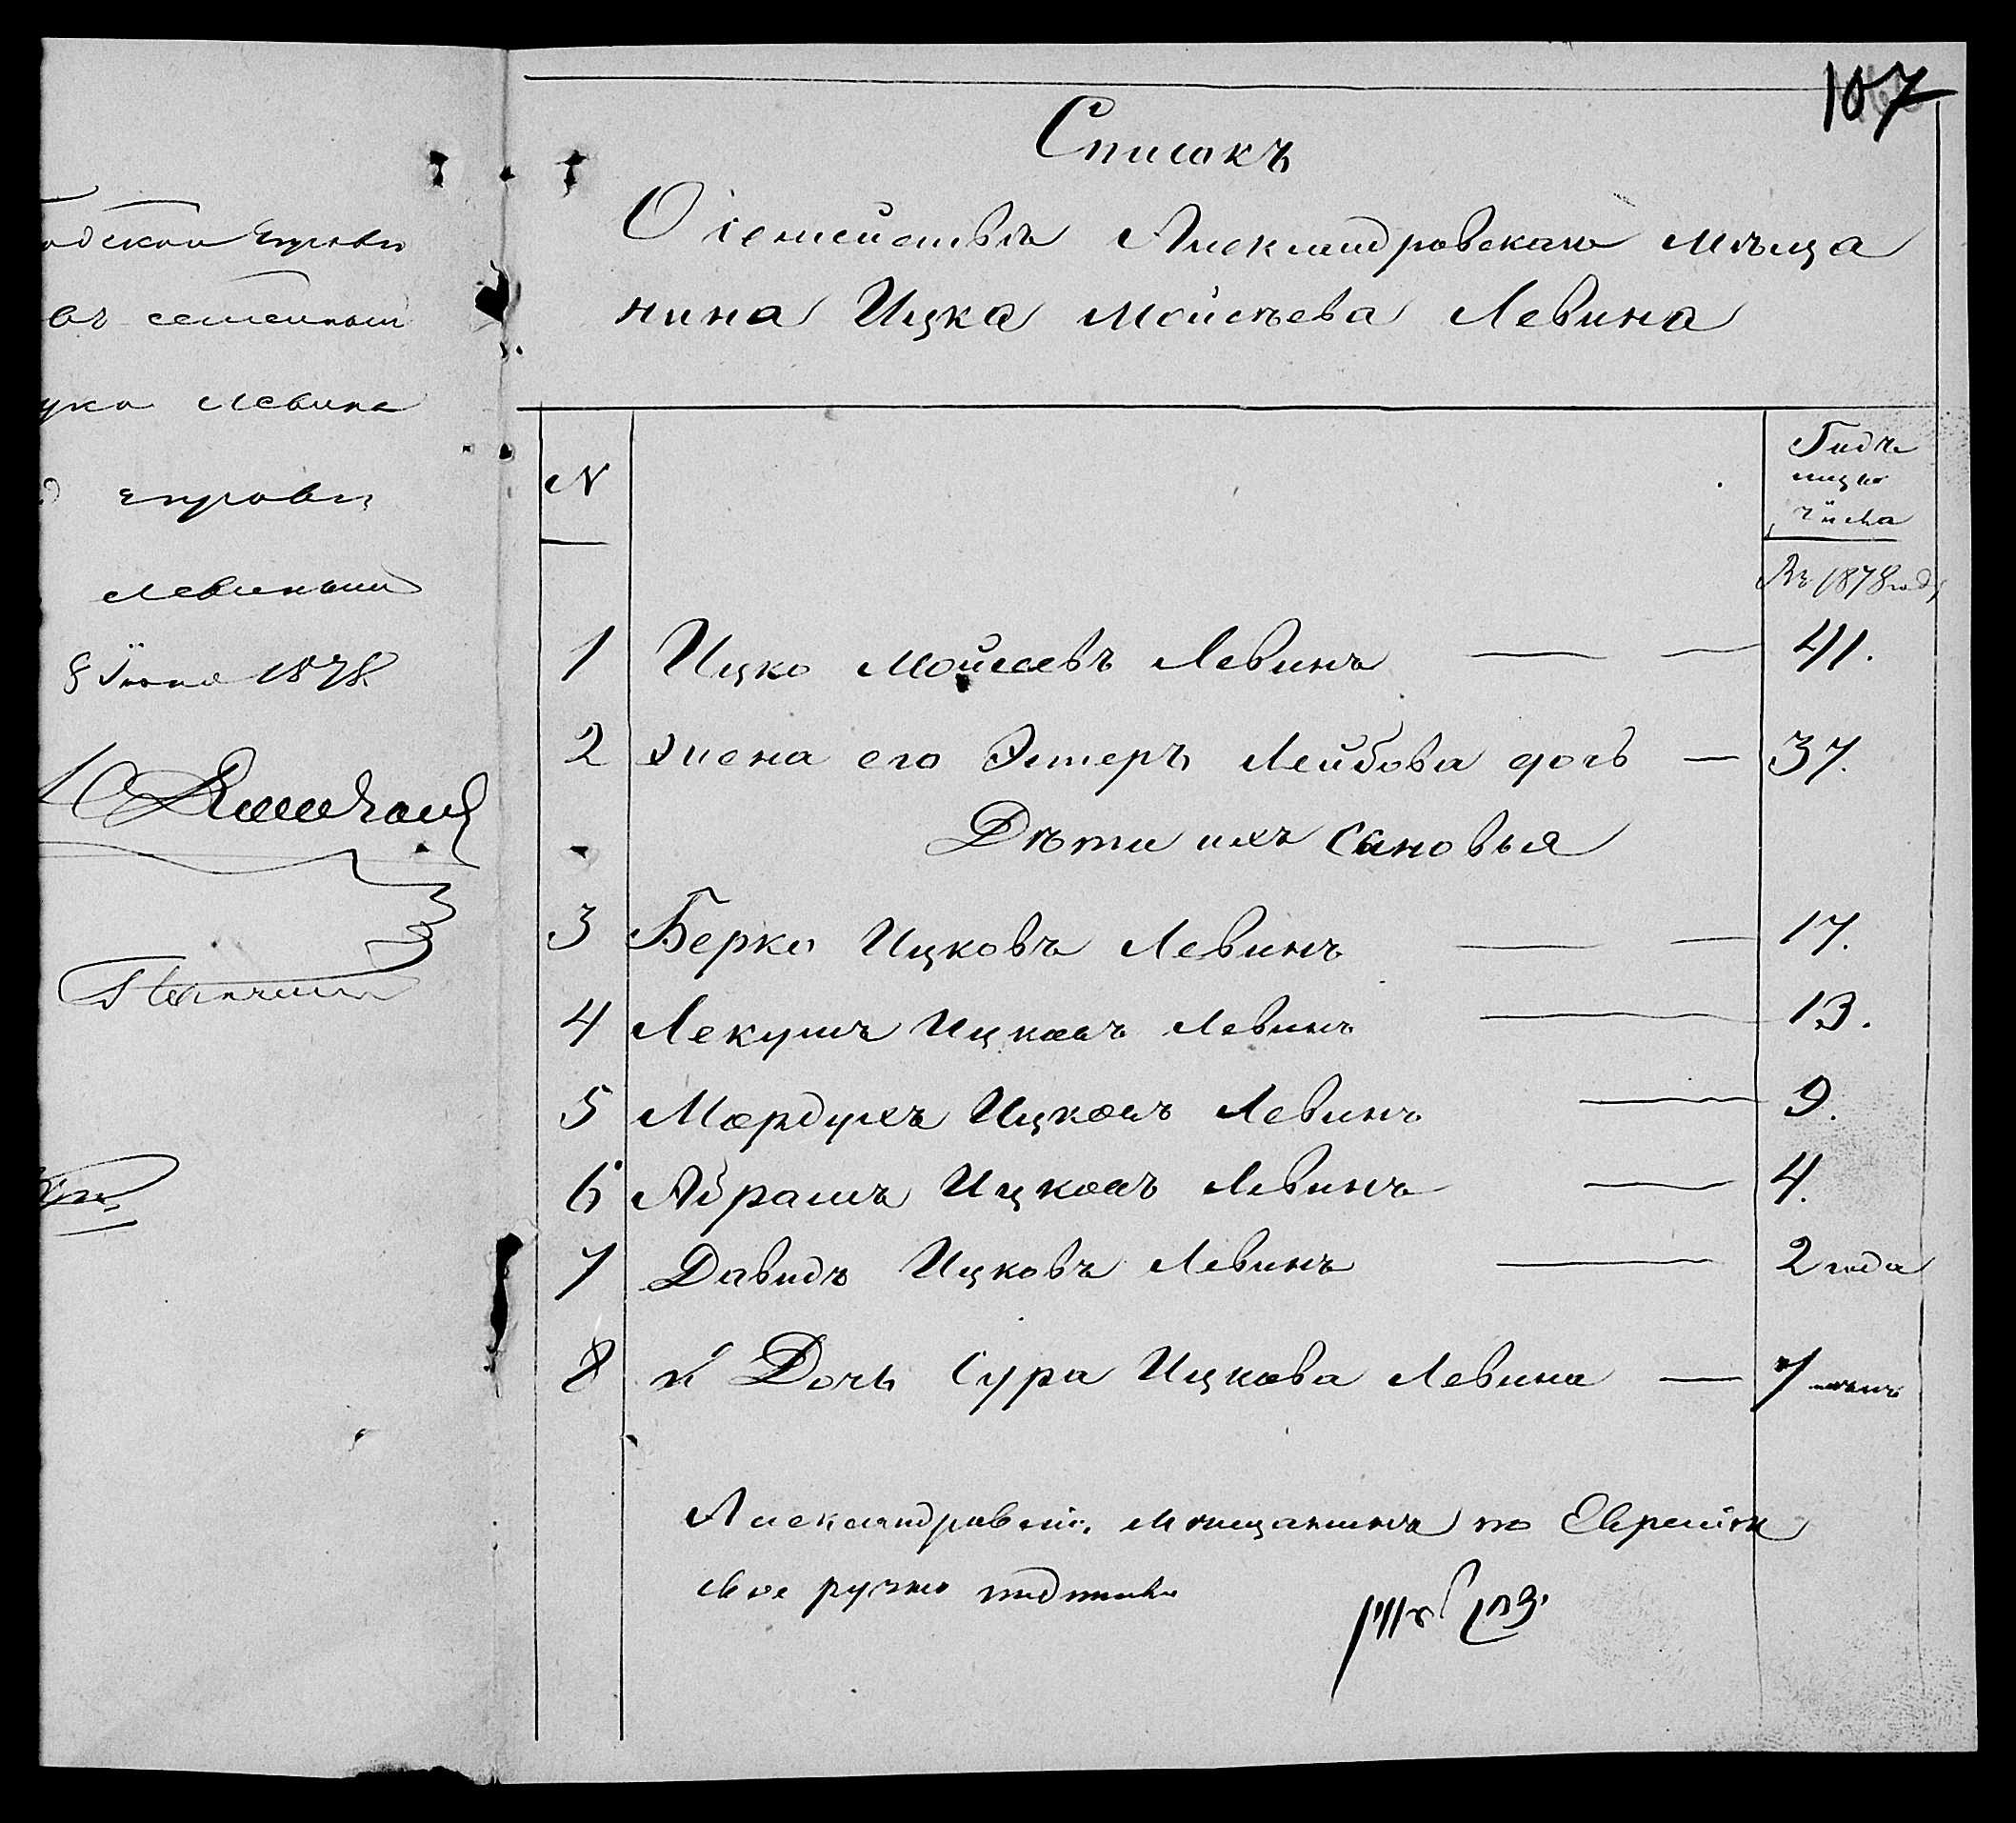 107
Списокъ
О семействѣ Александровскаго мѣща
нина Ицка Мойсѣева Левина
N
Годъ
мцъ и
числа
Въ 1878 году
1 Ицко Мойсеевъ Левинъ 41.
2 жена его Эстеръ Лейбова дочь 37.
Дѣти ихъ Сыновья
3 Берко Ицковъ Левинъ 17.
4 Лекушъ Ицковъ Левинъ 13.
5 Мордухъ Ицковъ Левинъ 9.
6 Абрамъ Ицковъ Левинъ 4.
7 Давидъ Ицковъ Левинъ 2 года
8 и Дочь Сура Ицкова Левина 7
Александровскій мѣщанинъ по Еврейски
свое ручно
יצחק לעווין
одской Управы
въ семейный
цка Левина
управы
Левинымъ
8 Іюня 1878.